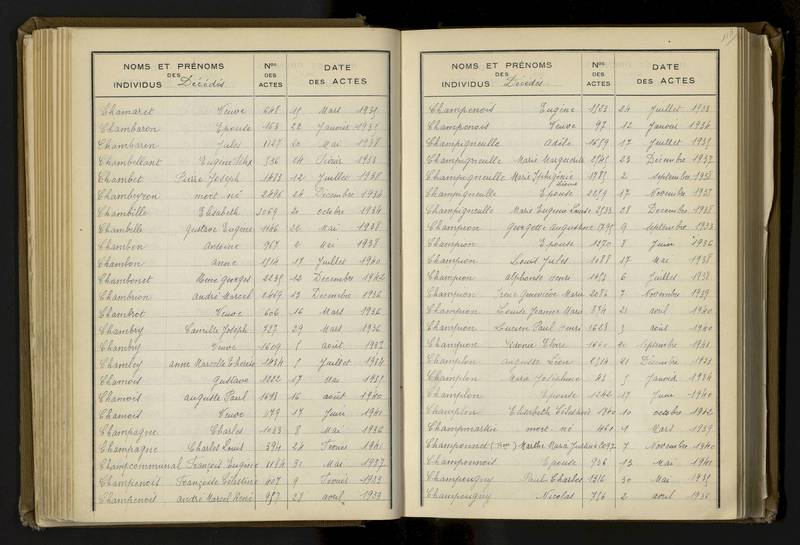 NOMS ET PRÉNOMS
DES
INDIVIDUS Décédés
Nos
DES
ACTES
DATE
DES ACTES
Chamaret Veuve 648 15 Mars 1935
Chambaron Epouse 163 22 Janvier 1935
Chambaron Jules 1127 20 Mai 1938
Chambellant Eugène 14 Février 1933
Chambet Pierre Joseph 1483 12 Juillet 1938
Chambeyron mort né 2446 24 Décembre 1934
Chambille Elisabeth 2069 20 octobre 1934
Chambille Gustave Eugène 1146 22 Mai 1938
Chambon Antoine 967 2 Mai 1938
Chambon Anne 1514 17 Juillet 1940
Chambonet Georges 2239 12 Décembre 1942
Chambrion André Marcel 2469 13 Décembre 1936
Chambrot Veuve 606 16 Mars 1936
Chambry Camille Joseph 727 29 Mars 1936
Chambry Veuve 1609 août
Chambry anne Marcelle 1434 Juillet 1934
Chamois Gustave 1222 17 Mai 1935
Chamois auguste Paul 1698 16 août 1940
Chamois Veuve 879 17 Juin 1941
Champagne Charles 1033 8 Mai 1936
Champagne Charles Louis 394 24 Février 1941
Champcommunal François Eugène 1184 31 Mai 1937
Champenois Françoise Célestine 407 9 Février 1933
Champenois andré Marcel René 957 23 avril 1939
NOMS ET PRÉNOMS
DES
INDIVIDUS Décédés
Nos
DES
ACTES
DATE
DES ACTES
Champenois Eugène 1523 24 Juillet 1938
Champenois Veuve 97 12 Janvier 1936
Champigneulle Adèle 1659 17 Juillet 1935
Champigneulle Marie Marguerite 2545 23 Décembre 1937
Champigneulle Marie Iphigénie 1785 2 septembre 1938
Champigneulle Epouse 2259 17 Novembre 1938
Champigneulle Marie Eugénie Louise 2533 28 Decembre 1938
Champion Georgette Augustine 1795 9 septembre 1933
Champion Epouse 1270 8 Juin 1936
Champion Louis Jules 1088 17 Mai 1938
Champion alphonse Henri 1453 6 Juillet 1938
Champion Irène Geneviève Marie 2086 7 Novembre 1939
Champion Louise Jeanne Marie 854 21 avril 1940
Champion Lucien Paul Henri 1628 3 août 1940
Champion 20 septembre 1941
Champlon auguste Léon 2514 21 Décembre 1938
Champlon Maria Joséphine 43 5 Janvier 1934
Champlon Epouse 1242 17 Juin 1940
Champlon Elisabeth 1940 10 octobre 1942
Champmartin mort né 461 1 Mars 1939
Champonnet Marthe Maria 7 Novembre 1940
Champonnois Epouse 936 13 Mai 1941
Champougny Paul Charles 1316 30 Mai 1935
Champougny Nicolas 756 2 avril 1936